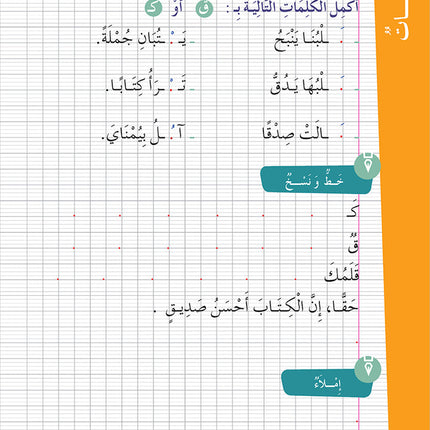 أَكْمِلِ الْكَلِمَاتِ التَّالِيَةَ بـِ : ق أَوْ ك
ـَـلْبُنَا يَنْبَحُ يَـ ـْتُبَانِ جُمْلَةً.
ـَـلْبُهَا يَدُقُّ تَـ ـْرَأُ كِتَابًا.
ـَـالَتْ صِدْقًا آ ـُـلُ بِيُمْنَايَ.
خَطٌّ وَ نَسْخٌ
كَـ
قٌ
قَلَمُكَ
حَقًّا، إِنَّ الْكِتَابَ أَحْسَنُ صَدِيقٍ .
إِمْلَاءٌ